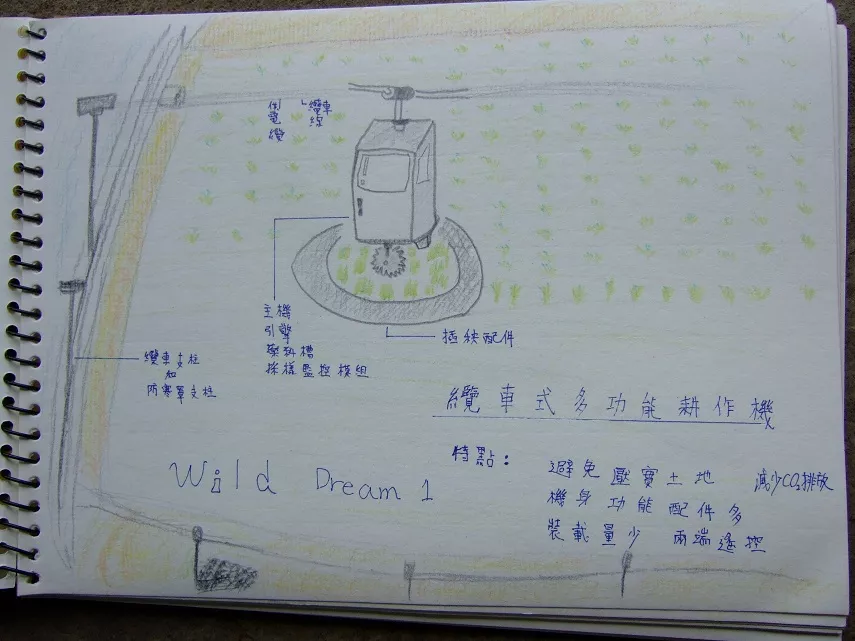 供電纜
纜車線
主機
引擎
藥料槽
採樣監控模組
插秧配件
纜車支柱
和
防寒罩支柱
纜車式多功能耕作機
特點：
避免壓實土地 減少CO2排放
機身功能配件多
裝載量少 兩端遙控
Wild Dream 1